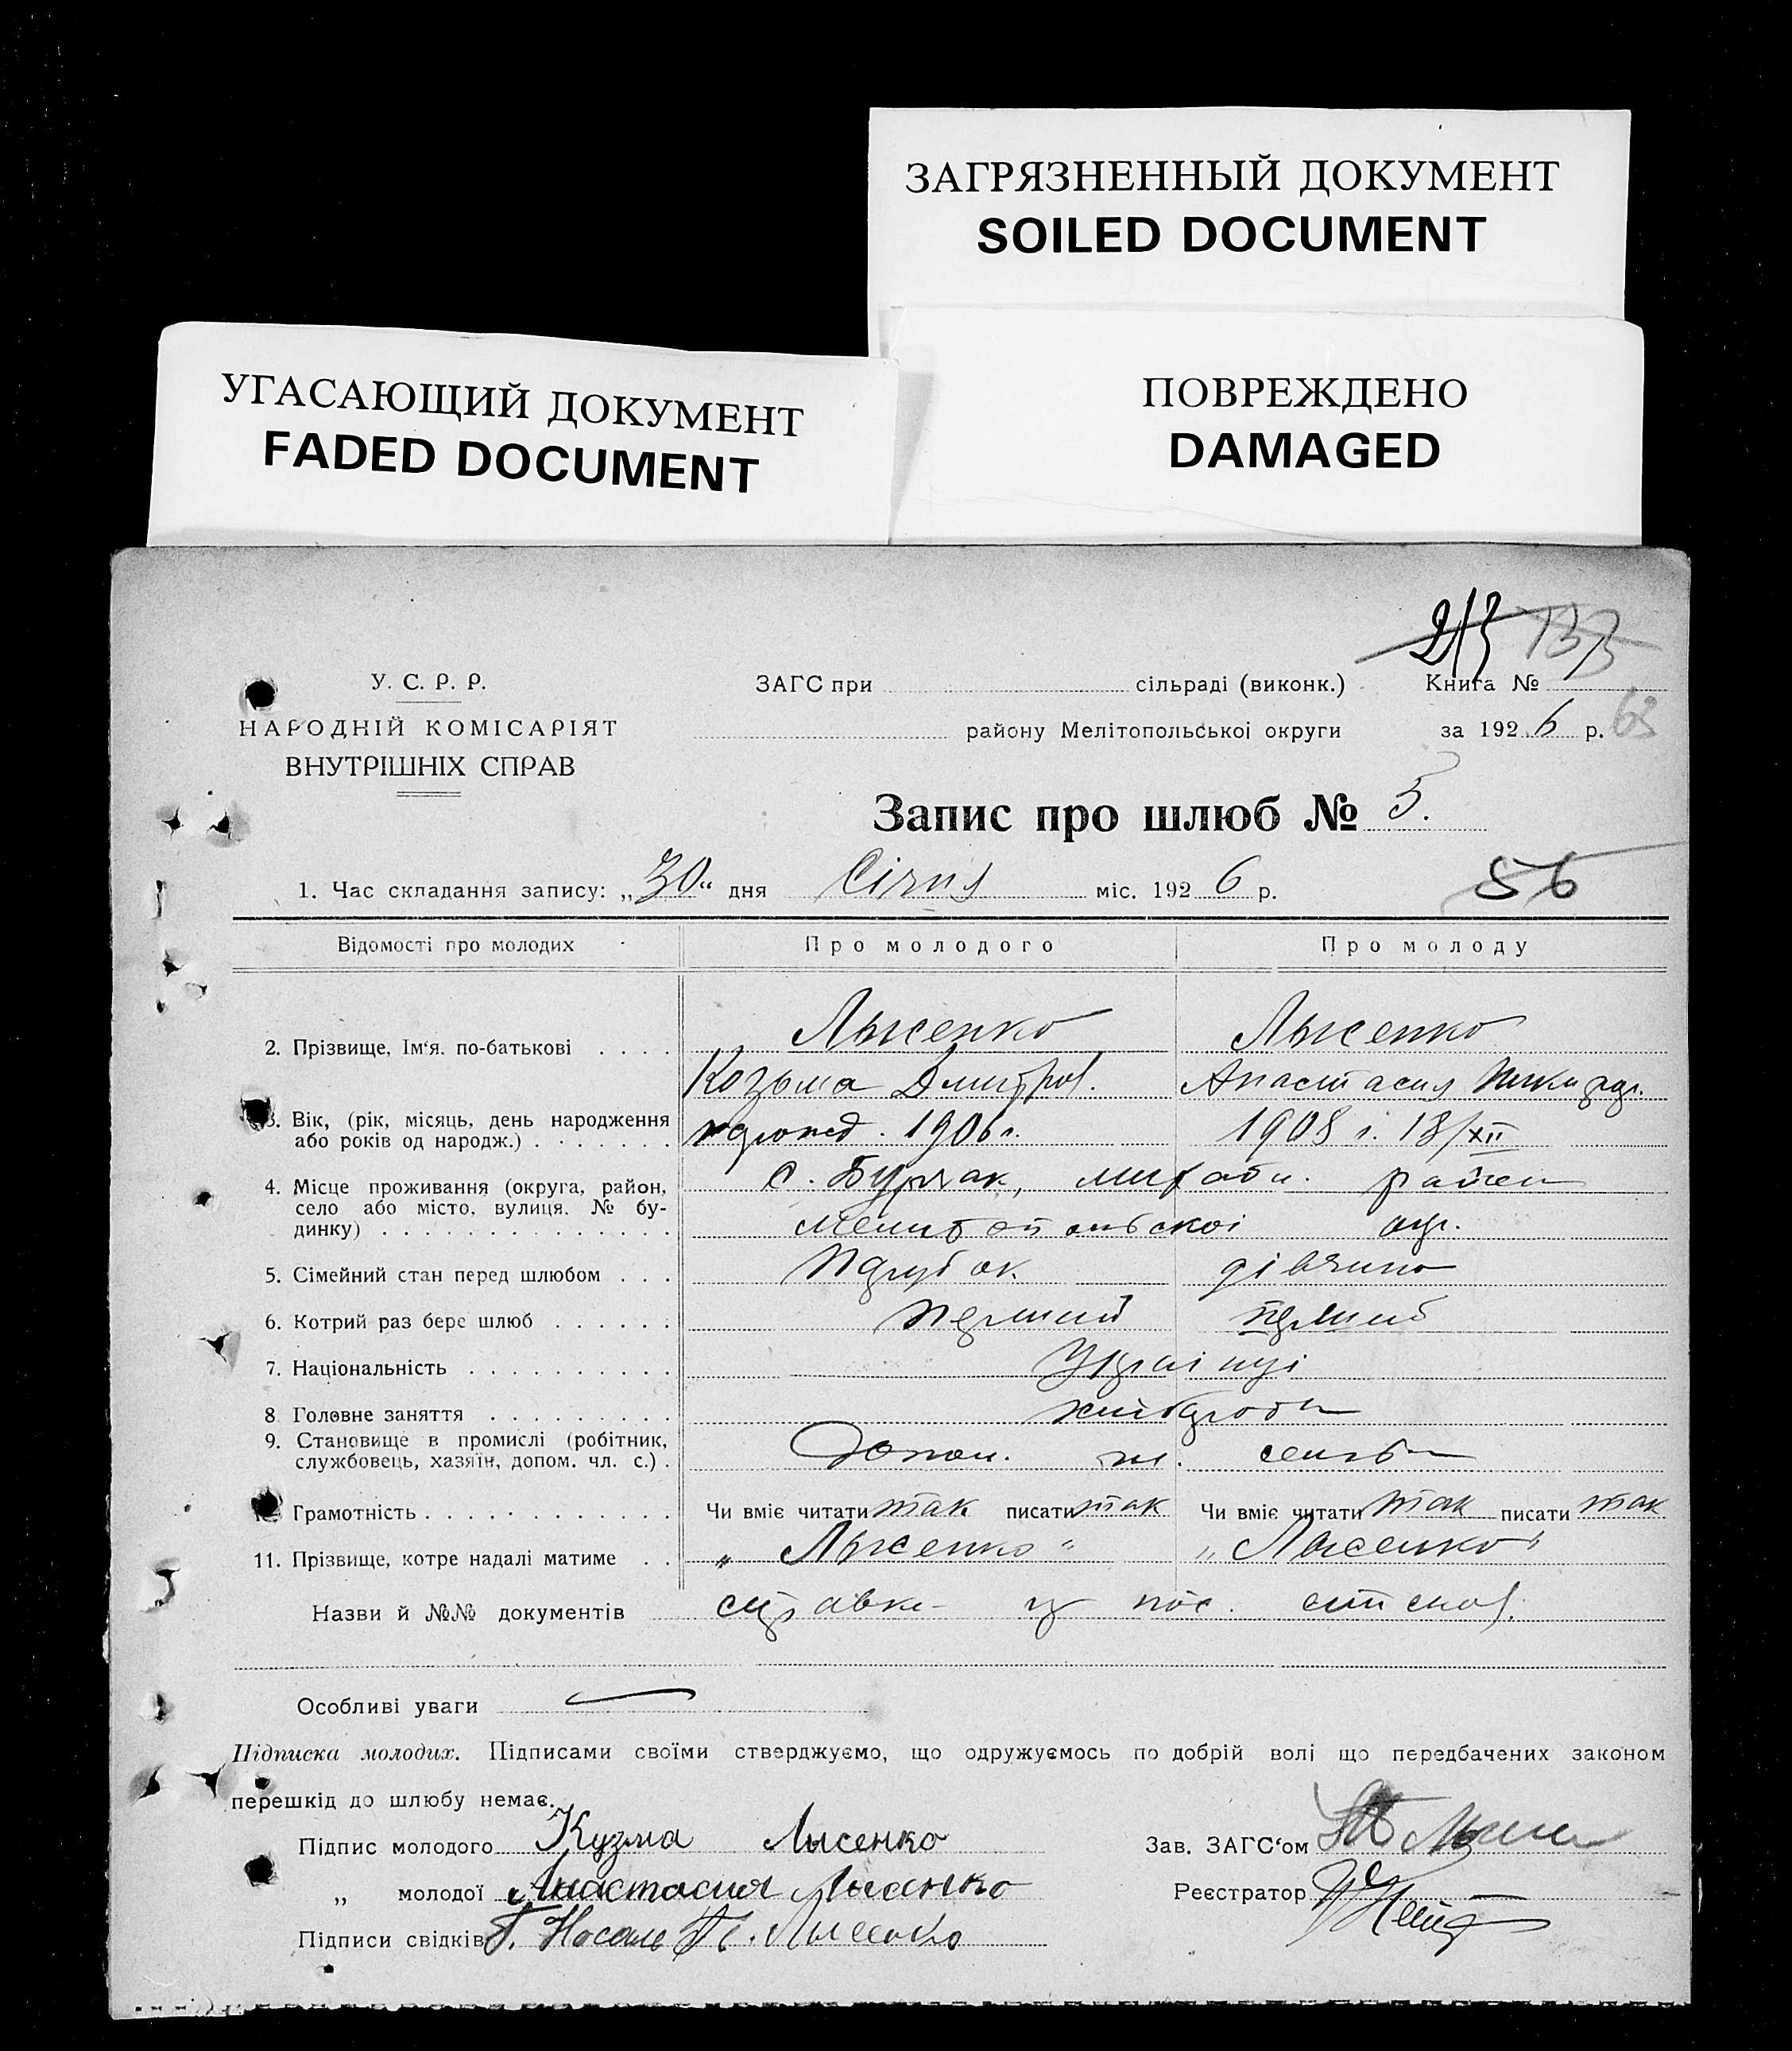 ЗАГРЯЗНЕННЫЙ ДОКУМЕНТ
SOILED DOCUMENT
УГАСАЮЩИЙ ДОКУМЕНТ
FADED DOCUMENT
ПОВРЕЖДЕНО
DAMAGED
213 133
У. С. Р. Р.
НАРОДНІЙ КОМІСАРІЯТ
ВНУТРІШНІХ СПРАВ
ЗАГС при сільраді (виконк.) Книга №
району Мелітопольської округи за 1926 р. 63
Запис про шлюб № 5.
1. Час складання запису: „30“ дня Січня міс. 1926 р. 56
Відомості про молодих Про молодого Про молоду
2. Прізвище, Ім‘я. по-батькові Лысенко Лысенко
Козьма Дмитров. Анастасия
3. Вік, (рік, місяць, день народження 1906 г. 1908 г. 18/XII
або років од народж.)
4. Місце проживання (округа, район, с. Бурчак, район
село або місто, вулиця. № бу- Мелитопольскоі окр.
динку)
5. Сімейний стан перед шлюбом Парубок дівчина
6. Котрий раз бере шлюб перший перший
7. Національність Українці
8. Головне заняття хлібороби
9. Становище в промислі (робітник, Допом. чл. семьи
службовець, хазяїн, допом. чл. с.)
Грамотність Чи вміє читати так писати так Чи вміє читати так писати так
11. Прізвище, котре надалі матиме „Лысенко“ „Лысенко“
Назви й №№ документів справка
Особливі уваги
Підписка молодих. Підписами своїми стверджуємо, що одружуємось по добрій волі що передбачених законом
перешкід до шлюбу немає.
Підпис молодого Кузма Лысенко Зав. ЗАГС‘ом
„ молодої Анастасия Лысенко Реєстратор
Підписи свідків Г. Носаль Лысенко